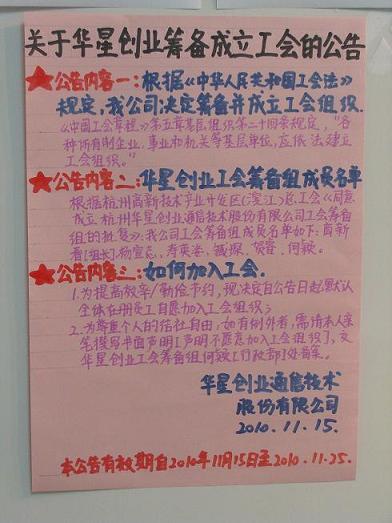 关于华星创业筹备成立工会的公告
公告内容一:根据《中华人民共和国工会法》
规定,我公司决定筹备并成立工会组织.
《中国工会章程》第五章基层组织第二十四条规定,"各
种所有制企业,事业和机关等基层单位,应依法建立
工会组织。"
公告内容二:华星创业工会筹备组成员名单
根据杭州高新技术产业开发区(滨江)总工会《同意
成立杭州华星创业通信技术股份有限公司工会筹备
组的批复》:我公司工会筹备组成员名单如下:
[组长]
公告内容三:如何加入工会.
1.为提高效率/勤俭节约,现决定自公告日起默认
全体在册员工自愿加入工会组织;
2.为尊重个人的结社自由,如有例外者,需请本人亲
笔撰写书面声明[声明不愿意加入工会组织],交
华星创业工会筹备组何颖[行政部]处备案。
华星创业通信技术
股份有限公司
2010.11.15.
本公告有效期自2010年11月15日至2010.11.25.